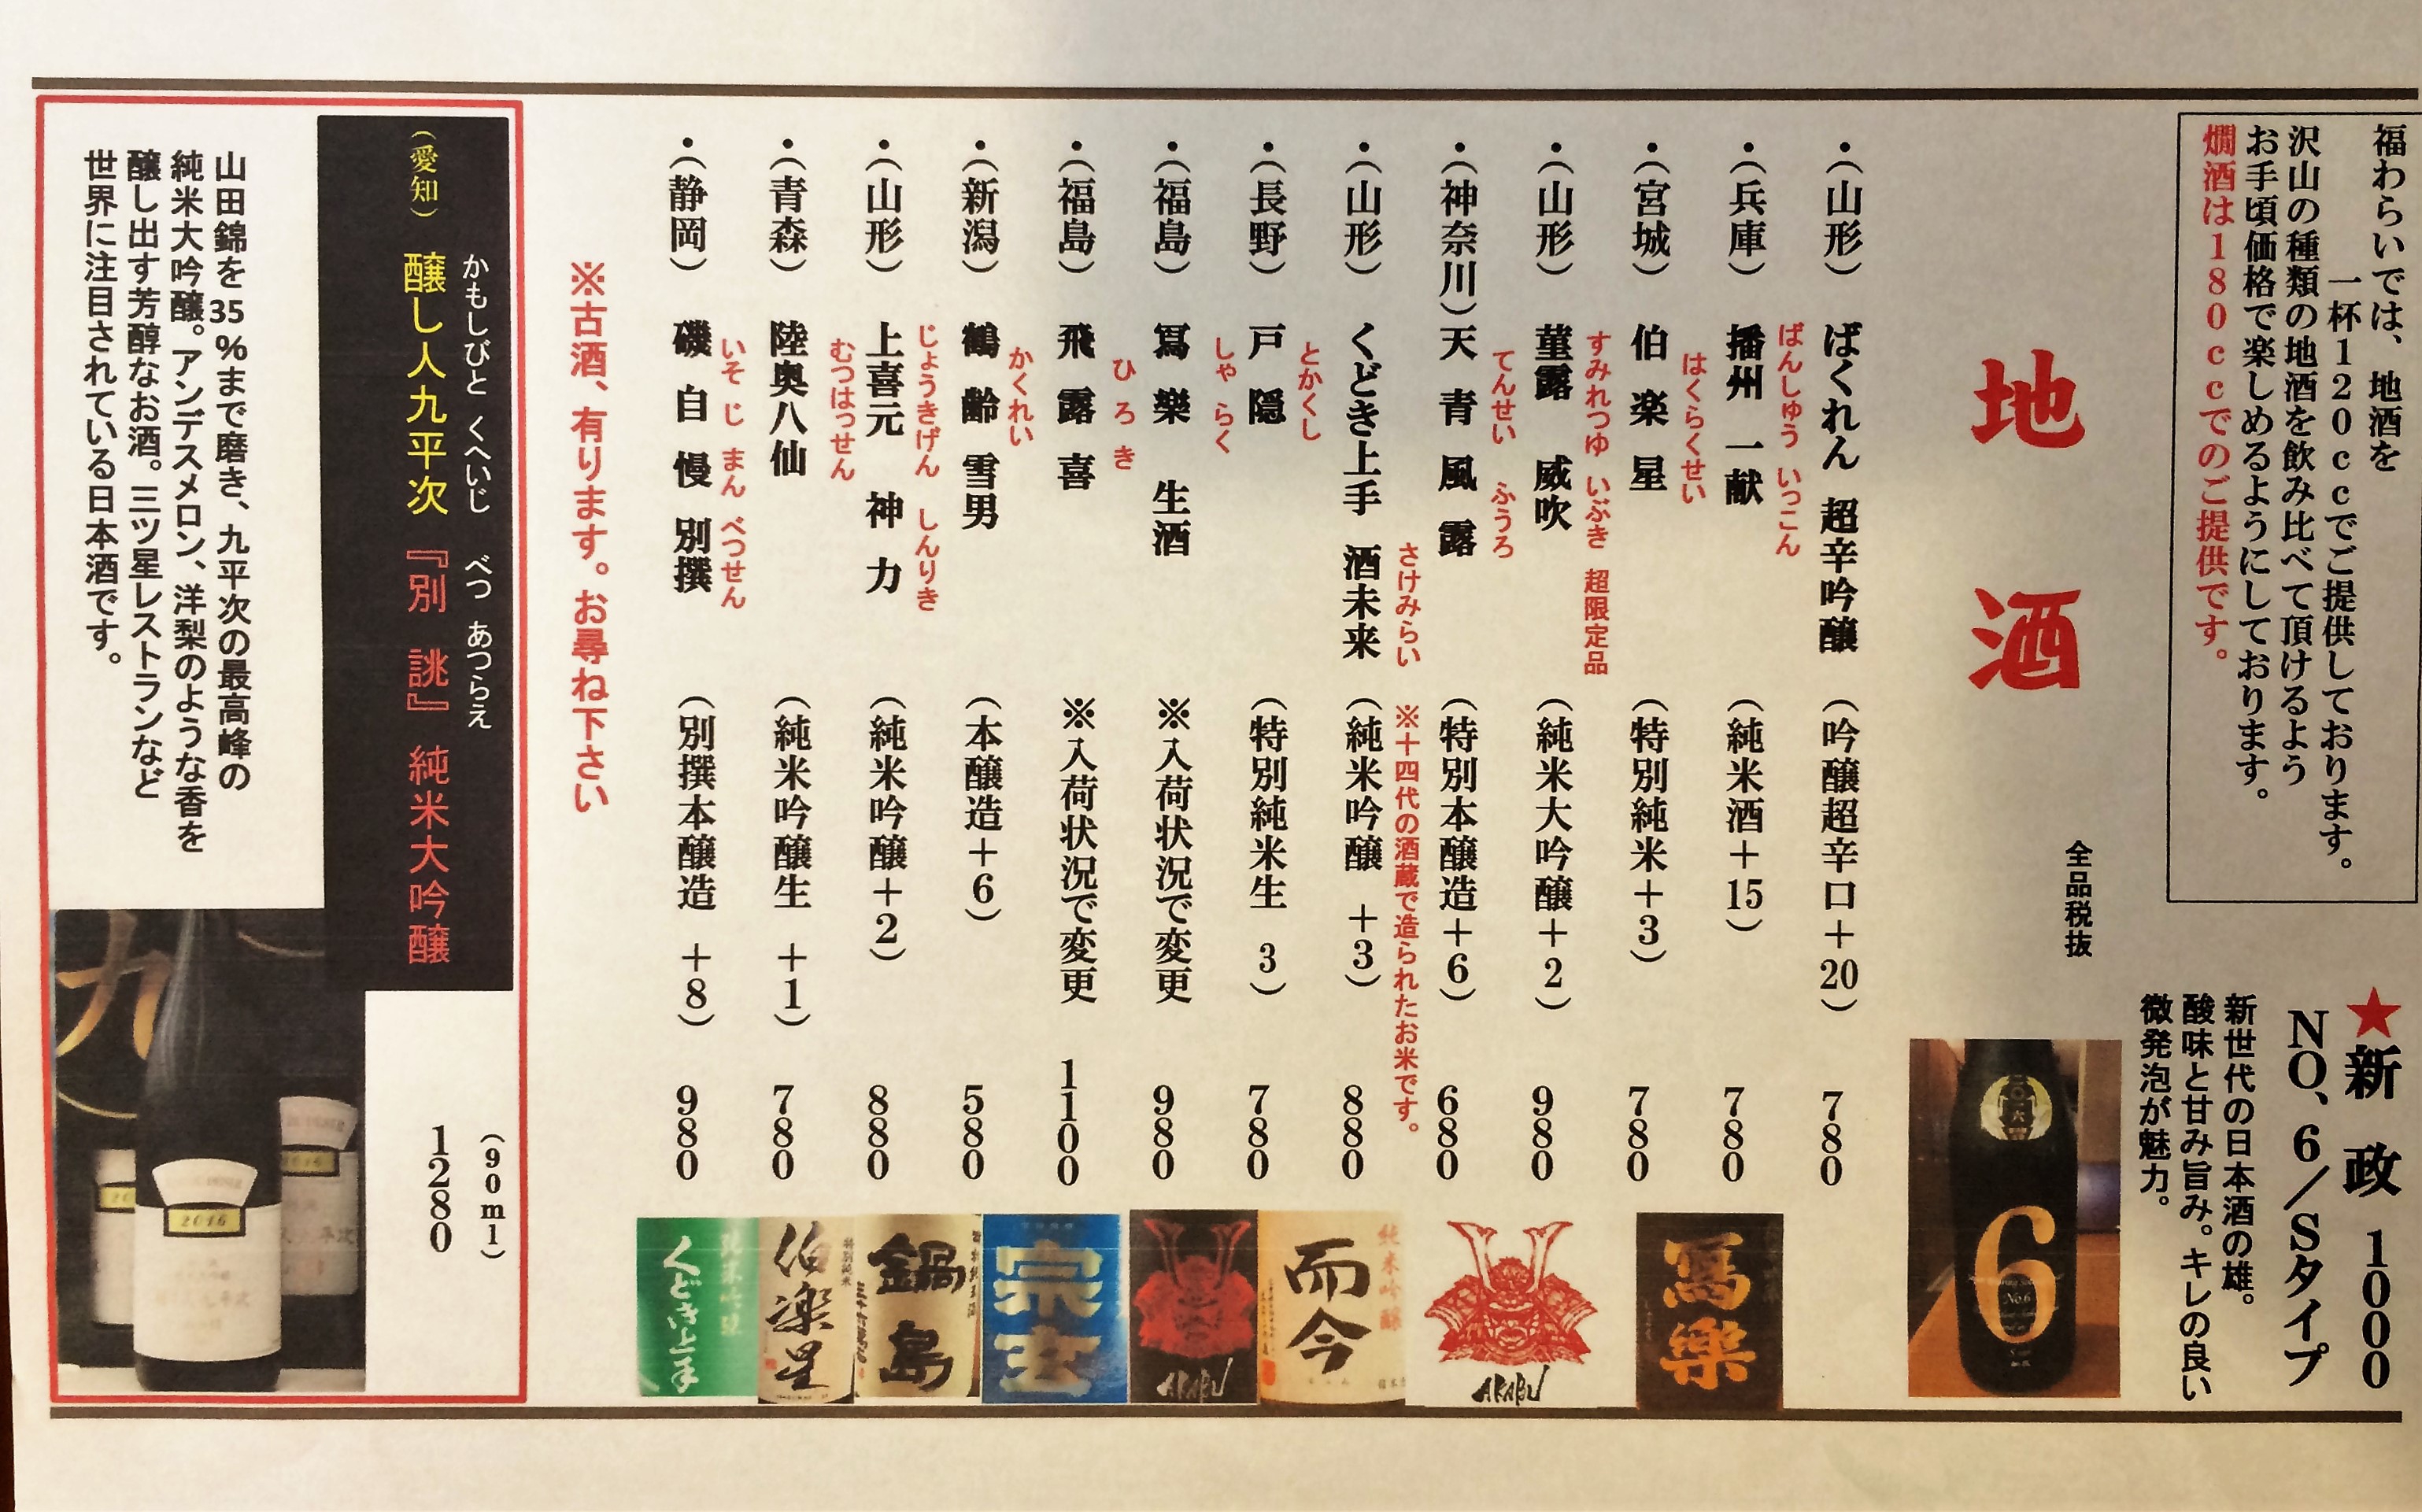 福わらいでは、地酒を
一杯120ccでご提供しております。
沢山の種類の地酒を飲み比べて頂けるよう
お手頃価格で楽しめるようにしております。
燗酒は180ccでのご提供です。
★新 政 1000
NO、6/Sタイプ
新世代の日本酒の雄。
酸味と甘み旨み。キレの良い
微発泡が魅力。
全品税抜
地 酒
6
No.6
・(山形) ばくれん 超辛吟醸 (吟醸超辛口+20) 780
ばんしゅう いっこん
・(兵庫) 播州 一献 (純米酒+15) 780
はくらくせい
・(宮城) 伯楽星 (特別純米+3) 780
すみれつゆ いぶき 超限定品
・(山形) 菫露 威吹 (純米大吟醸+2) 980
てんせい ふうろ
・(神奈川) 天青 風露 (特別本醸造+6) 680
さけみらい ※十四代の酒蔵で造られたお米です。
・(山形) くどき上手 酒未来 (純米吟醸 +3) 880
とかくし
・(長野) 戸隠 (特別純米生 3) 780
しゃ らく
・(福島) 冩樂 生酒 ※入荷状況で変更 980
ひ ろ き
・(福島) 飛露喜 ※入荷状況で変更 1100
かくれい
・(新潟) 鶴齢 雪男 (本醸造+6) 580
じょうきげん しんりき
・(山形) 上喜元 神力 (純米吟醸+2) 880
むつはっせん
・(青森) 陸奥八仙 (純米吟醸生 +1) 780
いそ じ まん べつせん
・(静岡) 磯自慢 別撰 (別撰本醸造 +8) 980
※古酒、有ります。お尋ね下さい
冩樂
AKABU
而今
純米吟醸
AKABU
宗玄
鍋島
伯楽星
特別純米
くどき上手
純米吟醸
かもしびと くへいじ べつ あつらえ
(愛知) 醸し人九平次 『別 誂』 純米大吟醸
(90ml)
1280
山田錦を35%まで磨き、九平次の最高峰の
純米大吟醸。アンデスメロン、洋梨のような香を
醸し出す芳醇なお酒。三ツ星レストランなど
世界に注目されている日本酒です。
九
2016
2016